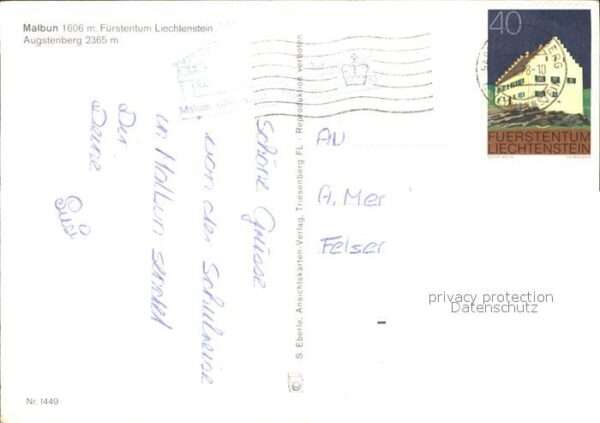 Malbun 1606 m. Fürstentum Liechtenstein
Augstenberg 2365 m
40
FÜRSTENTUM
LIECHTENSTEIN
schöne Grüsse
von der Schulreise
in Malbun sendet
Dir
Deine
Susi
S. Eberle, Ansichtskarten-Verlag, Triesenberg FL · Reproduktion verboten
AN
A. Mer
Felser
privacy protection
Datenschutz
Nr. 1449